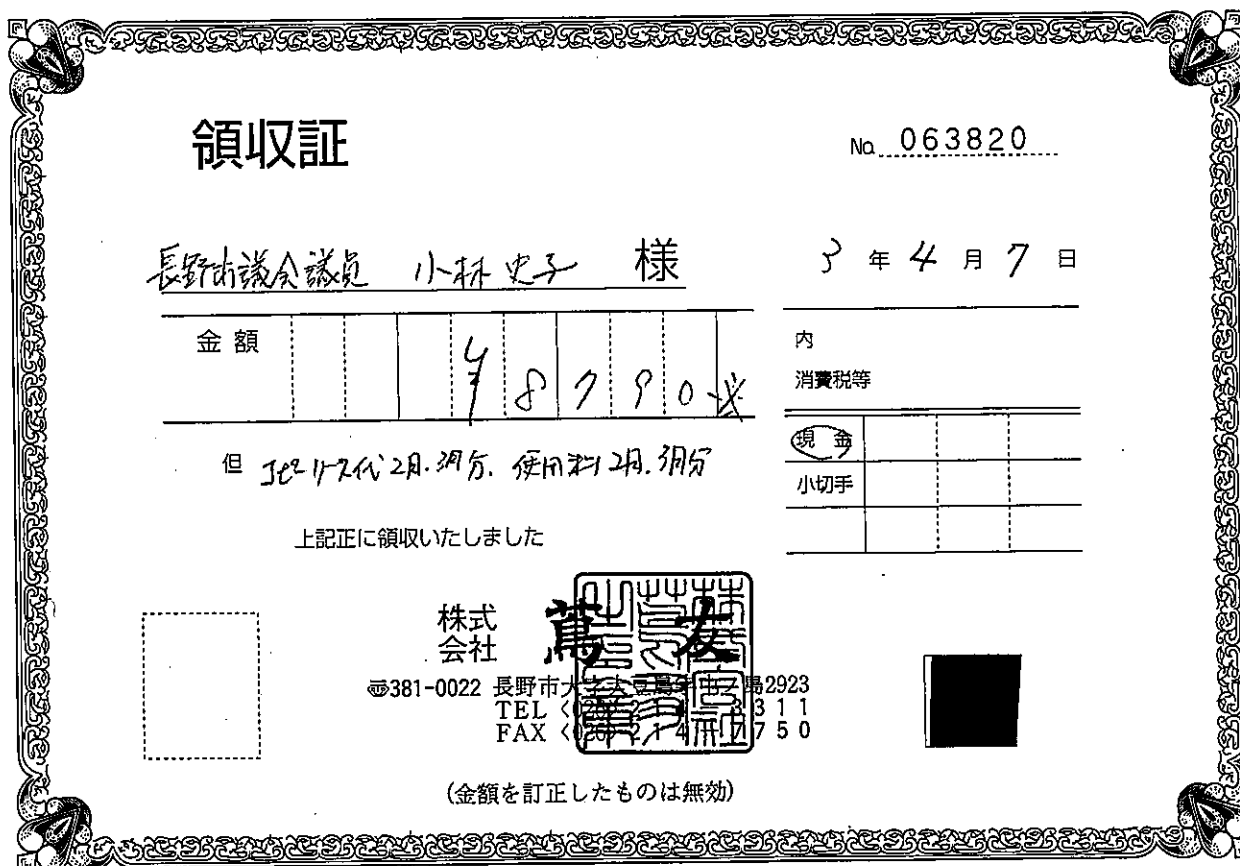 領収証
No. 063820
長野市議会議員 小林史子 様
3年4月7日
金額 ¥8790※
内
消費税等
現金
小切手
但 コピーリース代2月.3月分.使用料2月.3月分
上記正に領収いたしました
株式会社 蔦友
〠381-0022 長野市大字大豆島 2923
TEL 3311
FAX 214 7750
(金額を訂正したものは無効)